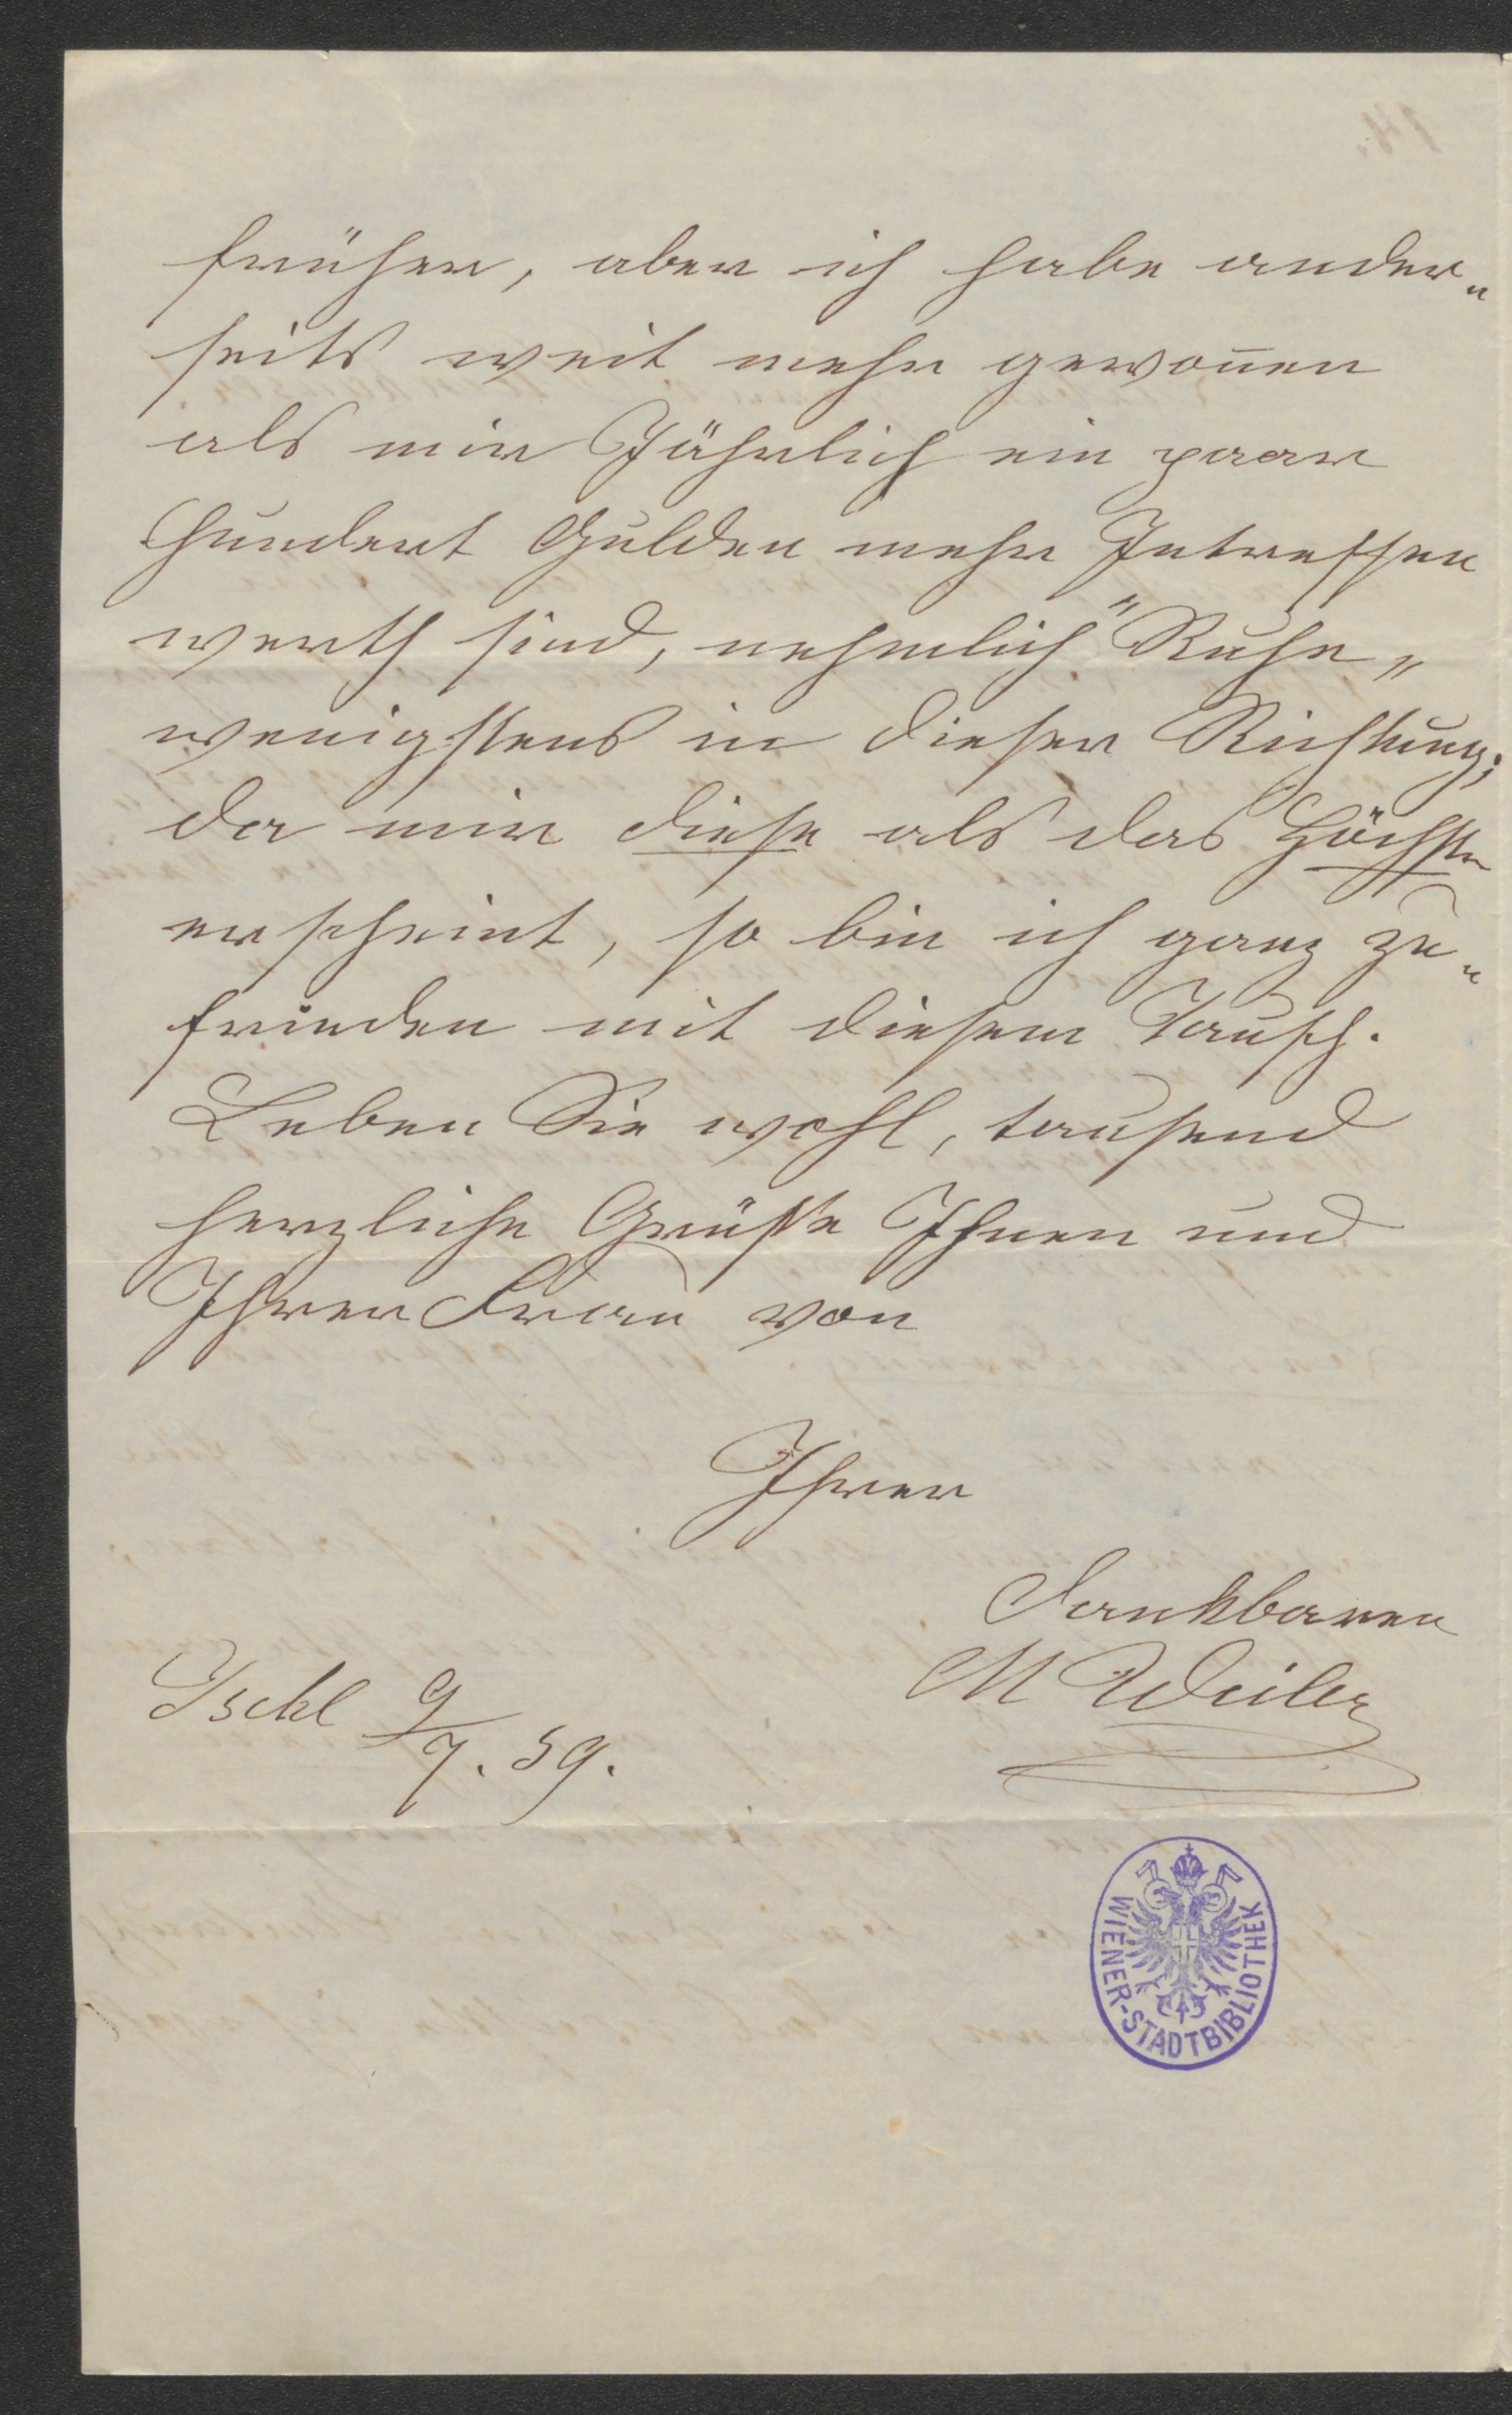 früher, aber ich habe ander„
seits weit mehr gewon̅en
als mir Jährlich ein paar
Hundert Gulden mehr Intressen
werth sind, nehmlich "Ruhe„
wenigstens in dieser Richtung;
da mir diese als das Höchste
erscheint, so bin ich ganz zu„
frieden mit diesem Tausch.
Leben Sie wohl, tausend
herzliche Grüße Ihnen und
Ihrer Frau von
Ihrer
Dankbaren
M Weiler
Ischl 9/7. 59.
WIENER-STADTBIBLIOTHEK